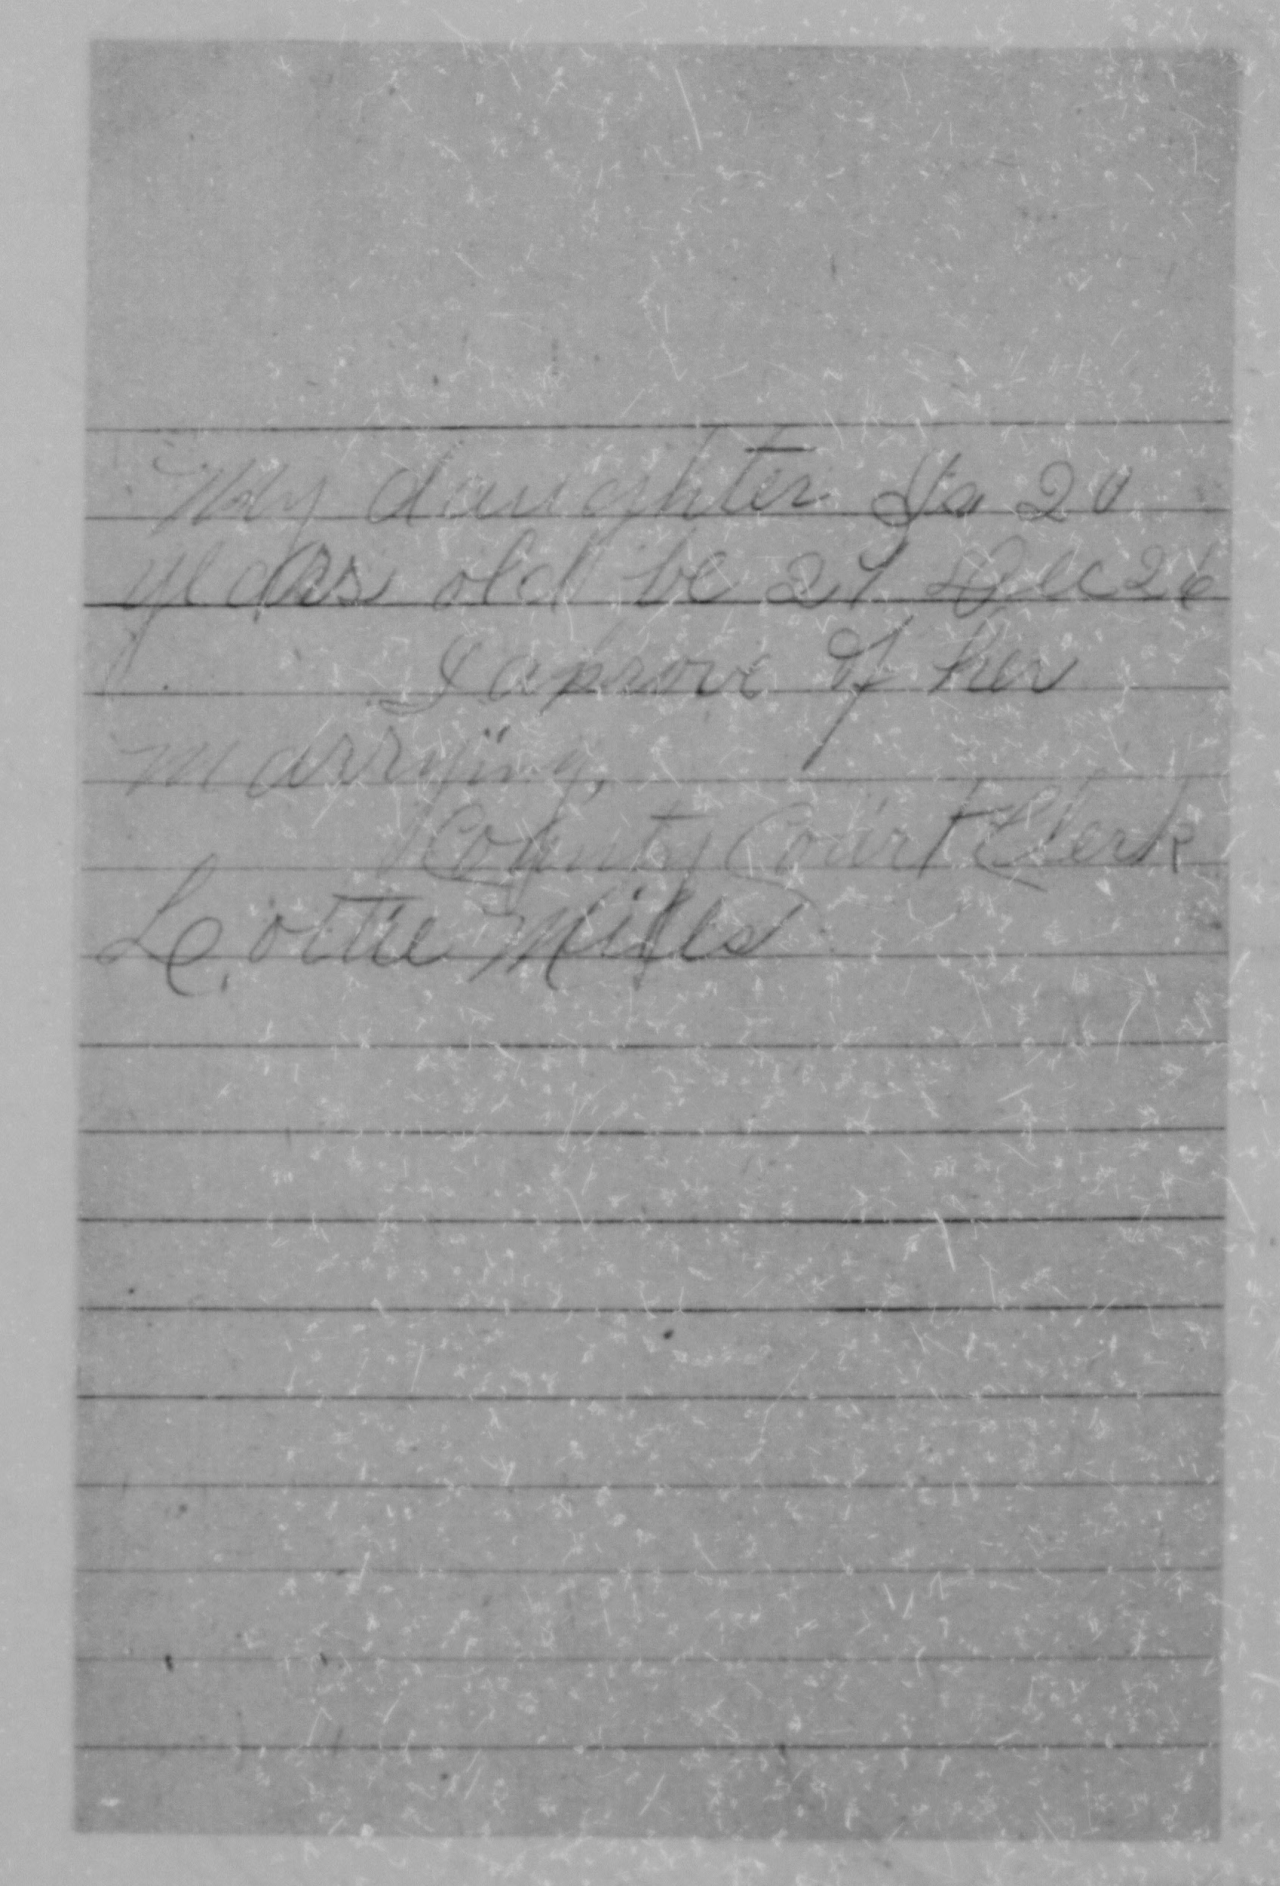 My daughter Is 20
years old be 21 Dec 26
I aprove of her
marrying.
County Court Clerk
Lottie Mills